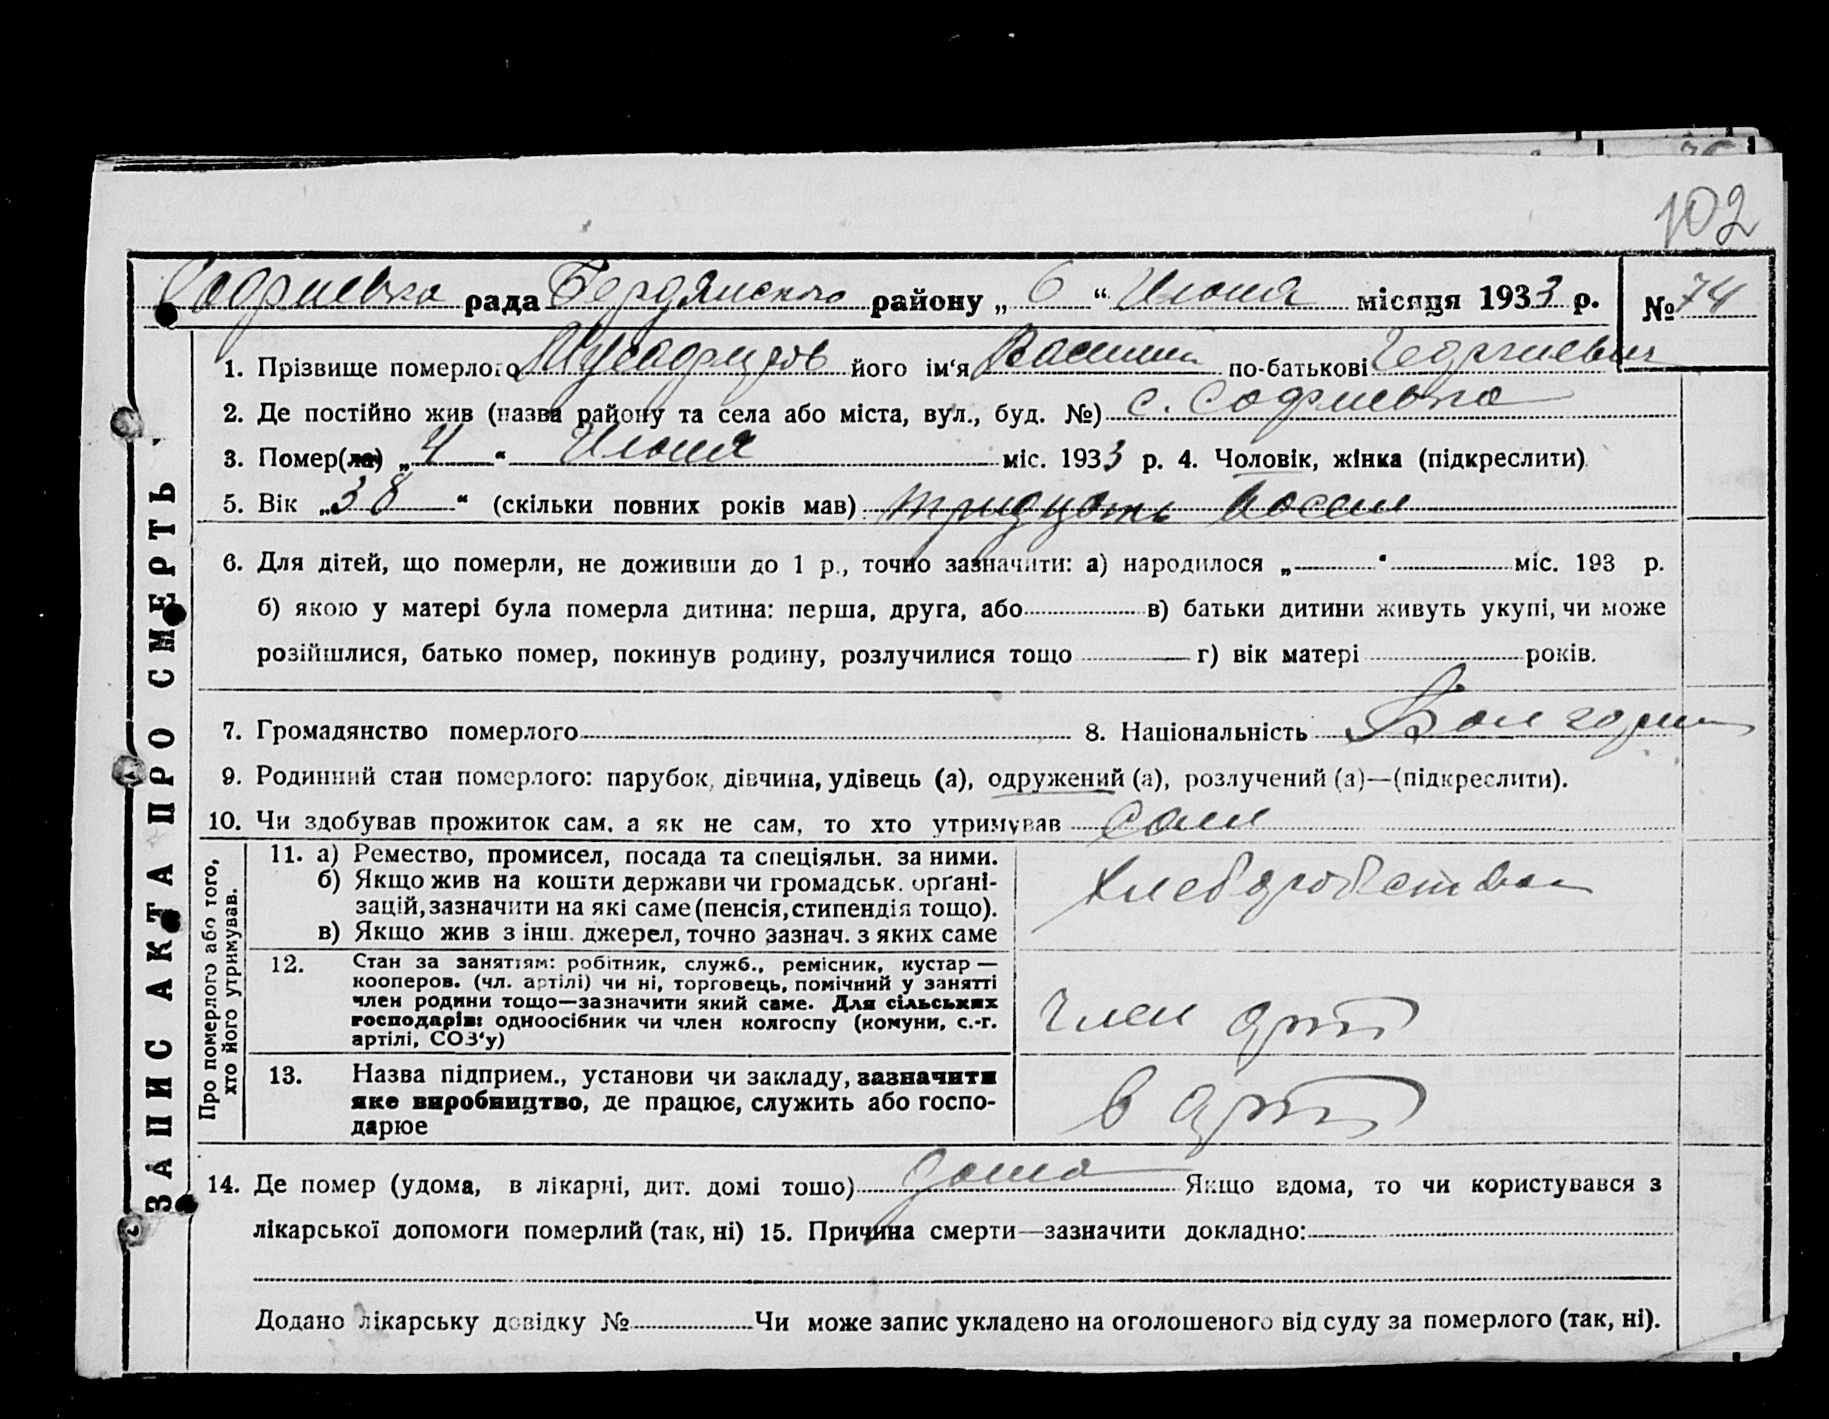 102
Софиевка рада Бердянского району „ 6 “ Июня місяця 1933 р. № 74
1. Прізвище померлого його ім‘я Василий по-батькові Георгиевич
2. Де постійно жив (назва району та села або міста, вул., буд. №) с. Софиевка
3. Помер(ла) „ 4 “ Июня міс. 1933 р. 4. Чоловік, жінка (підкреслити)
5. Вік „ 38 “ (скільки повних років мав) тридцать восем
6. Для дітей, що померли, не доживши до 1 р., точно зазначити: а) народилося „ “ міс. 193 р.
б) якою у матері була померла дитина: перша, друга, або в) батьки дитини живуть укупі, чи може
розійшлися, батько помер, покинув родину, розлучилися тощо г) вік матері років.
7. Громадянство померлого 8. Національність Болгарин
9. Родинний стан померлого: парубок, дівчина, удівець (а), одружений (а), розлучений (а)—(підкреслити).
10. Чи здобував прожиток сам, а як не сам, то хто утримував сам
11. а) Ремество, промисел, посада та спеціяльн. за ними.
б) Якщо жив на кошти держави чи громадськ. орґані-
зацій, зазначити на які саме (пенсія, стипендія тощо).
в) Якщо жив з інш. джерел, точно зазнач. з яких саме
12. Стан за заняттям: робітник, служб., ремісник, кустар —
кооперов. (чл. артілі) чи ні, торговець, помічний у занятті
член родини тощо—зазначити який саме. Для сільських
господарів: одноосібник чи член колгоспу (комуни, с.-г.
артілі, СОЗ‘у)
член арт
13. Назва підприєм., установи чи закладу, зазначити
яке виробництво, де працює, служить або госпо-
дарює
в арт
Про померлого або того,
хто його утримував.
14. Де помер (удома, в лікарні, дит. домі тощо) дома Якщо вдома, то чи користувався з
лікарської допомоги померлий (так, ні) 15. Причина смерти—зазначити докладно:
Додано лікарську довідку № Чи може запис укладено на оголошеного від суду за померлого (так, ні).
ЗАПИС АКТА ПРО СМЕРТЬ